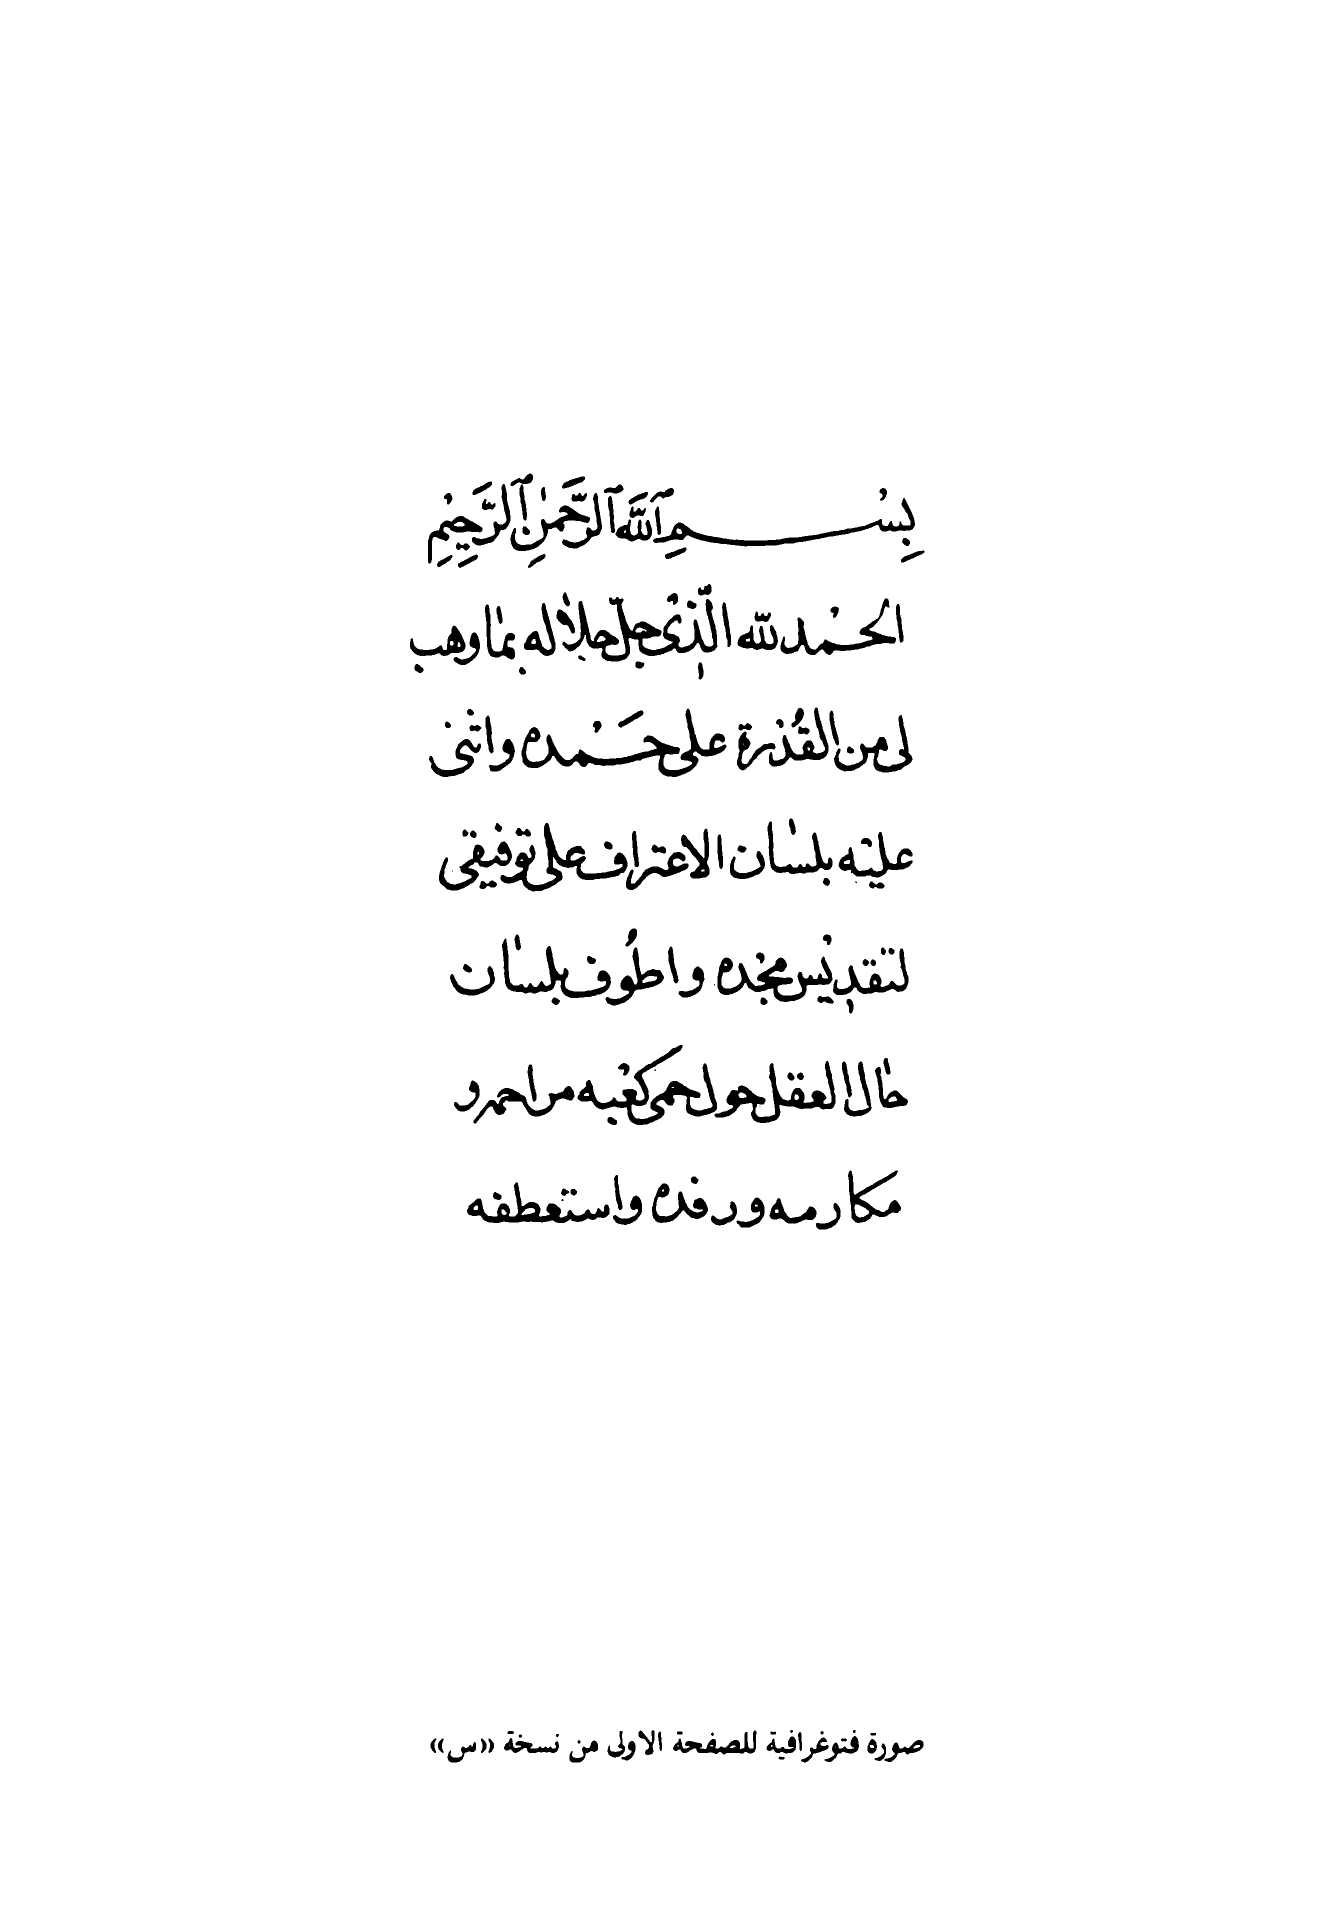 بِسْمِ ٱللَّهِ ٱلرَّحْمَٰنِ ٱلرَّحِيْمِ
الحمْد لله الّذي جلّ جلاله بما وهب
لى من القُدْرة على حَمْده واثنى
عليْه بلسان الاعتراف على توفيقى
لتقديْس مجْده واطُوف بلسان
حال العقل حول حمى كعْبه مراحمه و
مكارمه ورفده واستعطفه
صورة فتوغرافية للصفحة الاولى من نسخة «س»